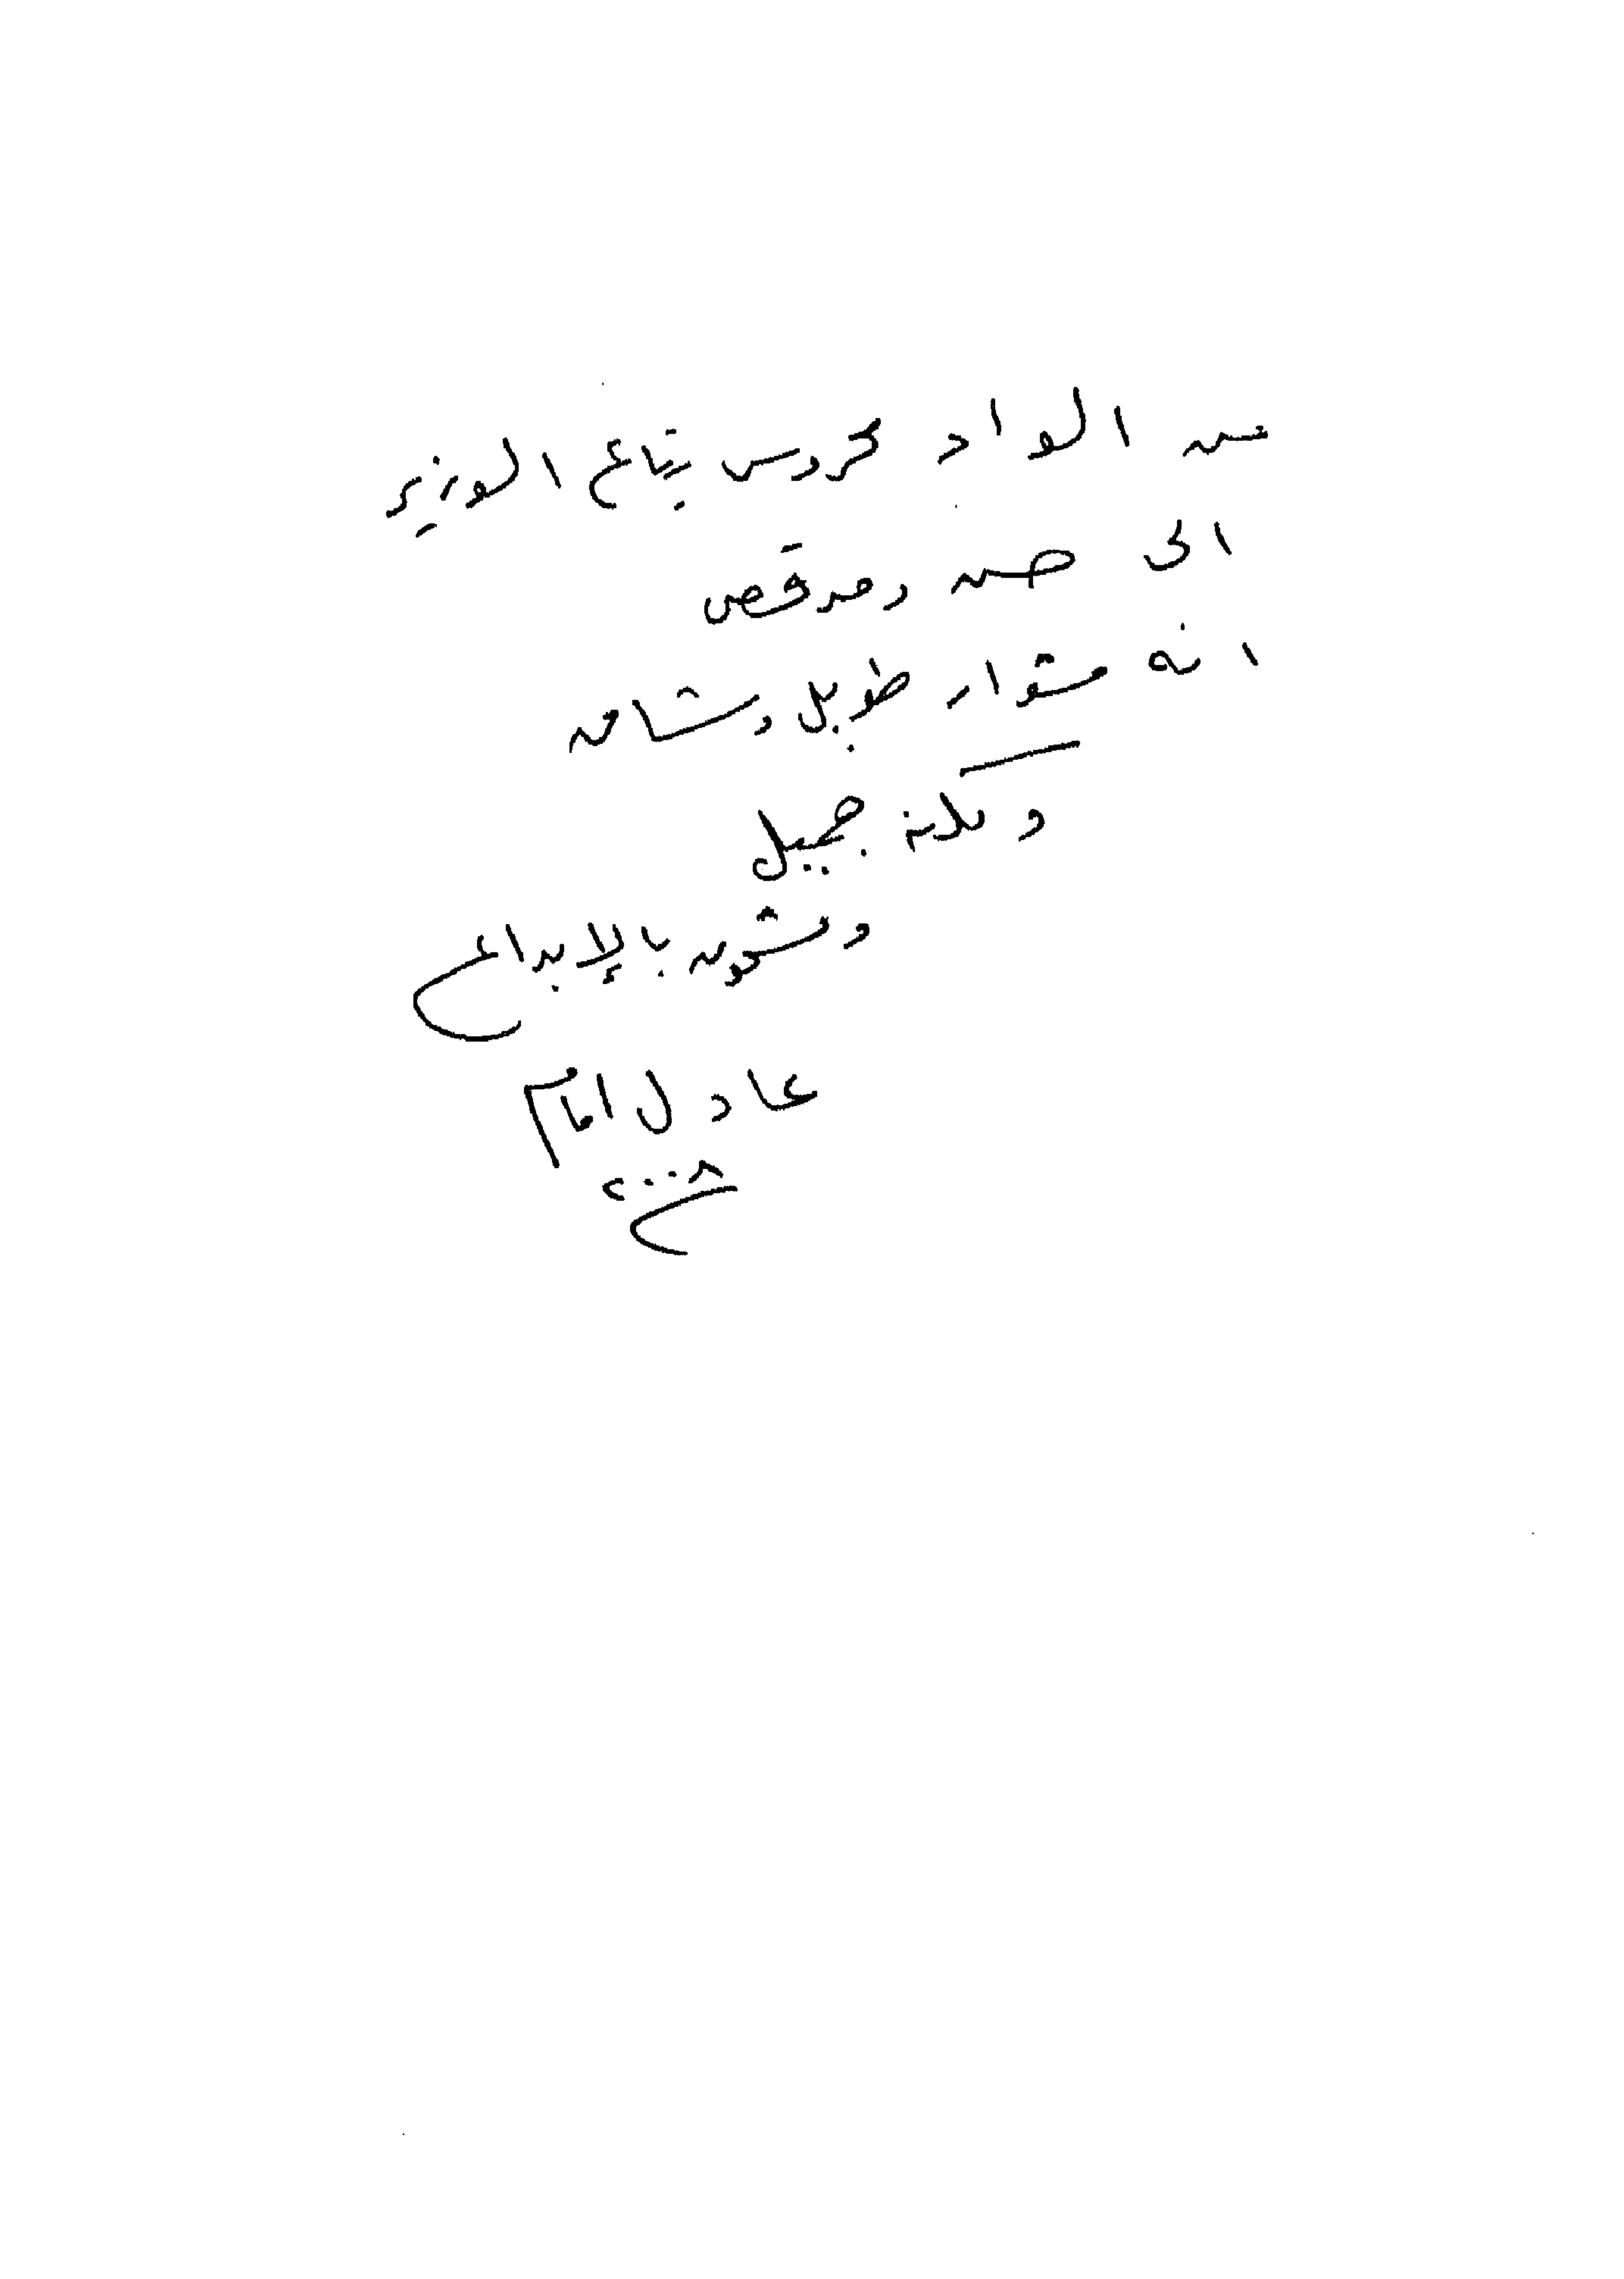 من الواد محروس بتاع الوزير
الى حسن ومرقص
انه مشوار طويل وشاق
ولكنه جميل
ومشحون بالإبداع
عادل امام
٢٠٠٨